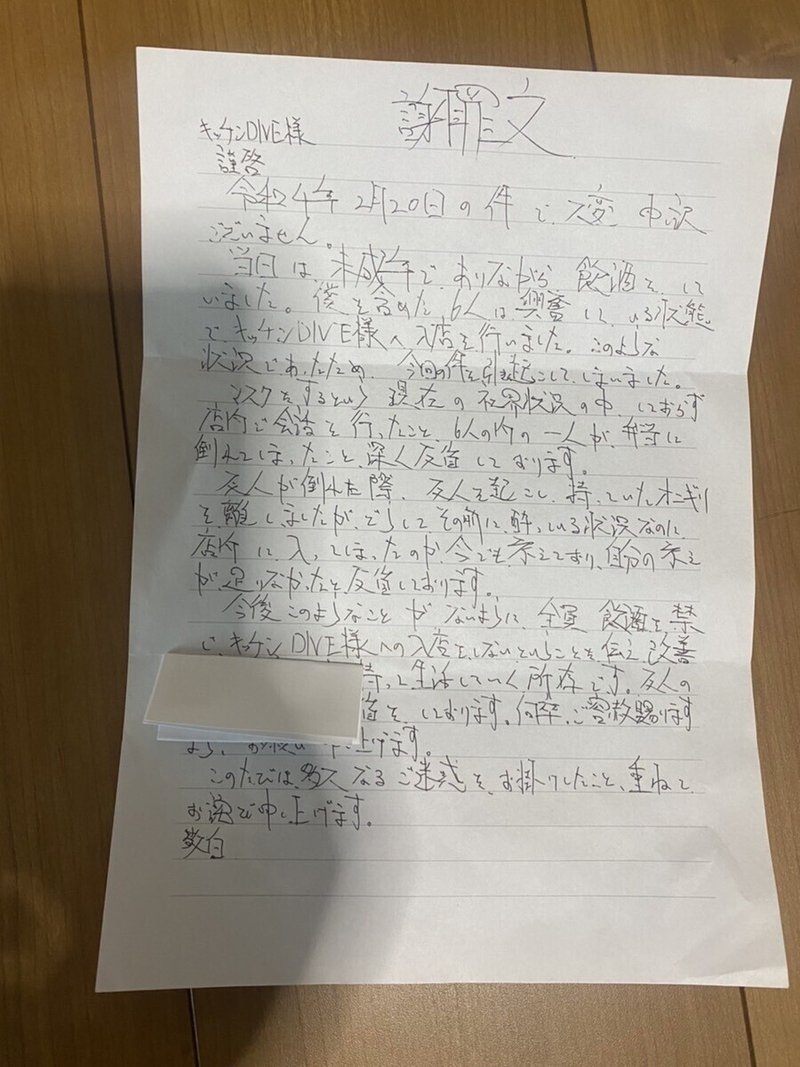 謝罪文
キッチンDIVE様
謹啓
令和4年 2月20日の件で、大変申訳
ございません。
当日は、未成年でありながら、飲酒をして
いました。僕を含めた6人は興奮している状態
でキッチンDIVE様へ入店を行いました。このような
状況であったため、今回の件を引き起こしてしまいました。
マスクをするという現在の社界状況の中、しておらず
店内で会話を行ったこと、6人の内の一人が、弁当に
倒れてしまったこと、深く反省しております。
友人が倒れた際、友人を起こし、持っていたオニギリ
を離しましたが、どうしてその前に、酔っている状況なのに
店内に入ってしまったのか、今でも考えており、自分の考え
が足りなかったと反省しております。
今後このようなことがないように、全員飲酒を禁
じ、キッチンDIVE様への入店をしないということを伝え、改善
持って生活していく所存です。友人の
をしております。何卒、ご容赦賜ります
よう、お願い申し上げます。
このたびは、多大なるご迷惑を、お掛けしたこと、重ねて
お詫び申し上げます。
敬白